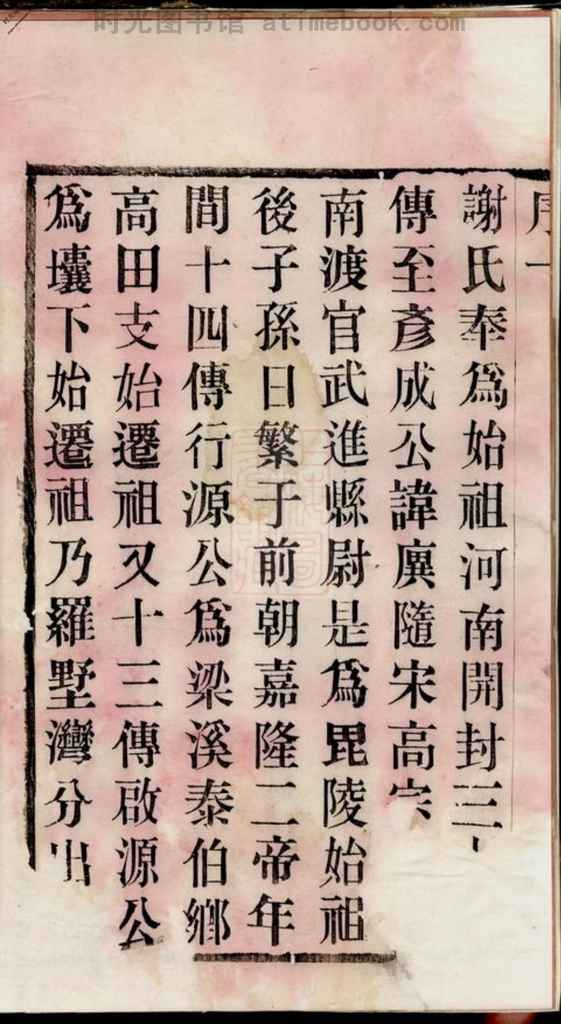 时光图书馆 atimebook.com
序一
謝氏奉爲始祖河南開封三十
傳至彥成公諱廙隨宋高宗
南渡官武進縣尉是爲毘陵始祖
後子孫日繁于前朝嘉隆二帝年
間十四傳行源公爲梁溪泰伯鄉
高田支始遷祖又十三傳啟源公
爲壤下始遷祖乃羅墅灣分出